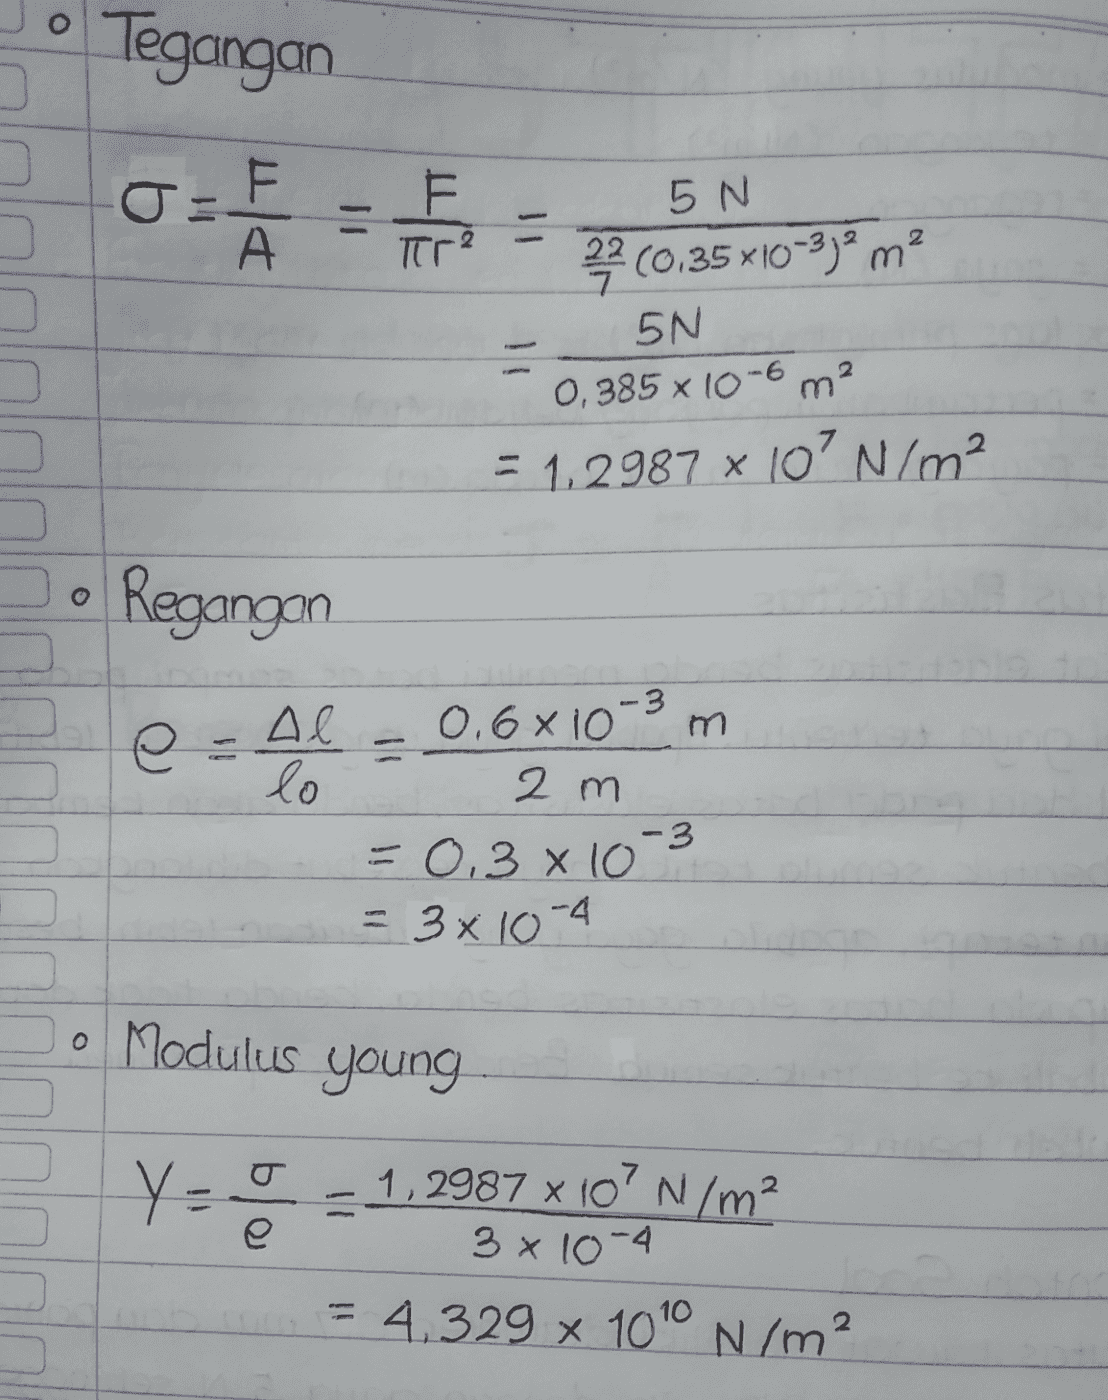 ° Tegangan
σ = F/A = F/πr² = 5 N / 22/7 (0,35 × 10⁻³)² m²
= 5N / 0,385 × 10⁻⁶ m²
= 1,2987 × 10⁷ N/m²
° Regangan
e = Δl/lo = 0,6 × 10⁻³ m / 2 m
= 0,3 × 10⁻³
= 3 × 10⁻⁴
° Modulus young.
Y = σ/e = 1,2987 × 10⁷ N/m² / 3 × 10⁻⁴
= 4,329 × 10¹⁰ N/m²